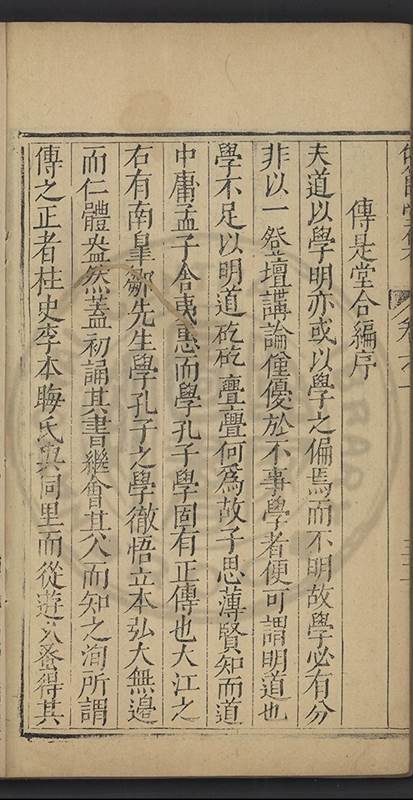 傳是堂合編序
夫道以學明亦或以學之偏焉而不明故學必有分
非以一登壇講論僅優於不事學者便可謂明道也
學不足以明道矻矻亹亹何爲故子思薄賢知而道
中庸孟子舍夷惠而學孔子學固有正傳也大江之
右有南臯鄒先生學孔子之學徹悟立本弘大無邊
而仁體盎然蓋初誦其書繼會其人而知之洵所謂
傳之正者柱史李本晦氏與同里而從遊又蚤得其